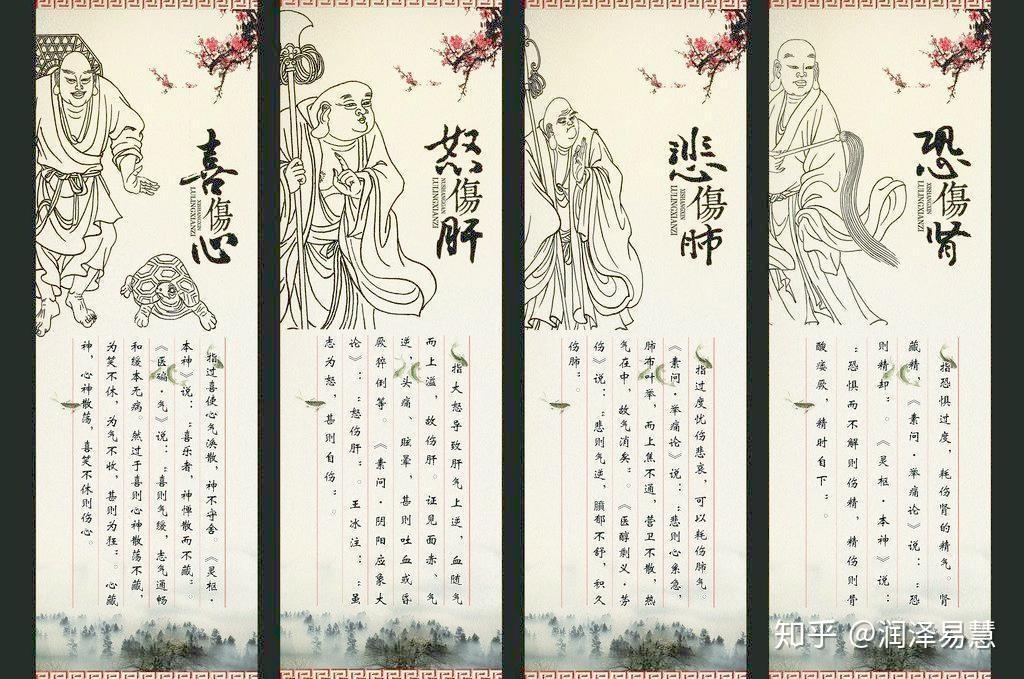 喜傷心
XISHANGXIN
LULINGXIANZI
指过喜使心气涣散，神不守舍。《灵枢·
本神》说：“喜乐者，神惮散而不藏”。
《医碥·气》说：“喜则气缓，志气通畅
和缓本无病。然过于喜则心神散荡不藏，
为笑不休，为气不收，甚则为狂”。心藏
神，心神散荡，喜笑不休则伤心。
怒傷肝
LULINGXIANZI
指大怒导致肝气上逆，血随气
而上溢，故伤肝。证见面赤、气
逆，头痛、眩晕，甚则吐血或昏
厥猝倒等。《素问·阴阳应象大
论》：“怒伤肝”。王冰注：“虽
志为怒，甚则自伤”。
悲傷肺
XISHANGXIN
LULINGXIANZI
指过度忧伤悲哀，可以耗伤肺气。
《素问·举痛论》说：“悲则心系急，
肺布叶举，而上焦不通，营卫不散，热
气在中，故气消矣”。《医醇剩义·劳
伤》说：“悲则气逆，膹郁不舒，积久
伤肺”。
恐傷肾
XISHANGXIN
LULINGXIANZI
指恐惧过度，耗伤肾的精气。肾
藏精，《素问·举痛论》说：“恐
则精却”。《灵枢·本神》说：
“恐惧而不解则伤精，精伤则骨
酸痿厥，精时自下”。
知乎 @润泽易慧